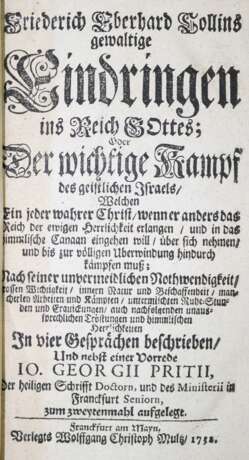 Friederich Eberhard Collins
gewaltige
Eindringen
ins Reich GOttes;
Oder
Der wichtige Kampf
des geistlichen Israels/
Welchen
Ein jeder wahrer Christ/ wenn er anders das
Reich der ewigen Herrlichkeit erlangen / und in das
himmlische Canaan eingehen will / über sich nehmen/
und bis zur völligen Uberwindung hindurch
kämpfen muß;
Nach seiner unvermeidlichen Nothwendigkeit/
grossen Wichtigkeit / innern Natur und Beschaffenheit / man-
cherley Arbeiten und Kämpfen / untermischten Ruhe-Stun-
den und Erquickungen / auch nachfolgenden unaus-
sprechlichen Tröstungen und himmlischen
Herrlichkeiten
In vier Gesprächen beschrieben/
Und nebst einer Vorrede
IO. GEORGII PRITII,
der heiligen Schrifft Doctorn, und des Ministerii in
Franckfurt Seniorn,
zum zweytenmahl aufgelegt.
Franckfurt am Mayn,
Verlegts Wolffgang Christoph Multz / 1752.